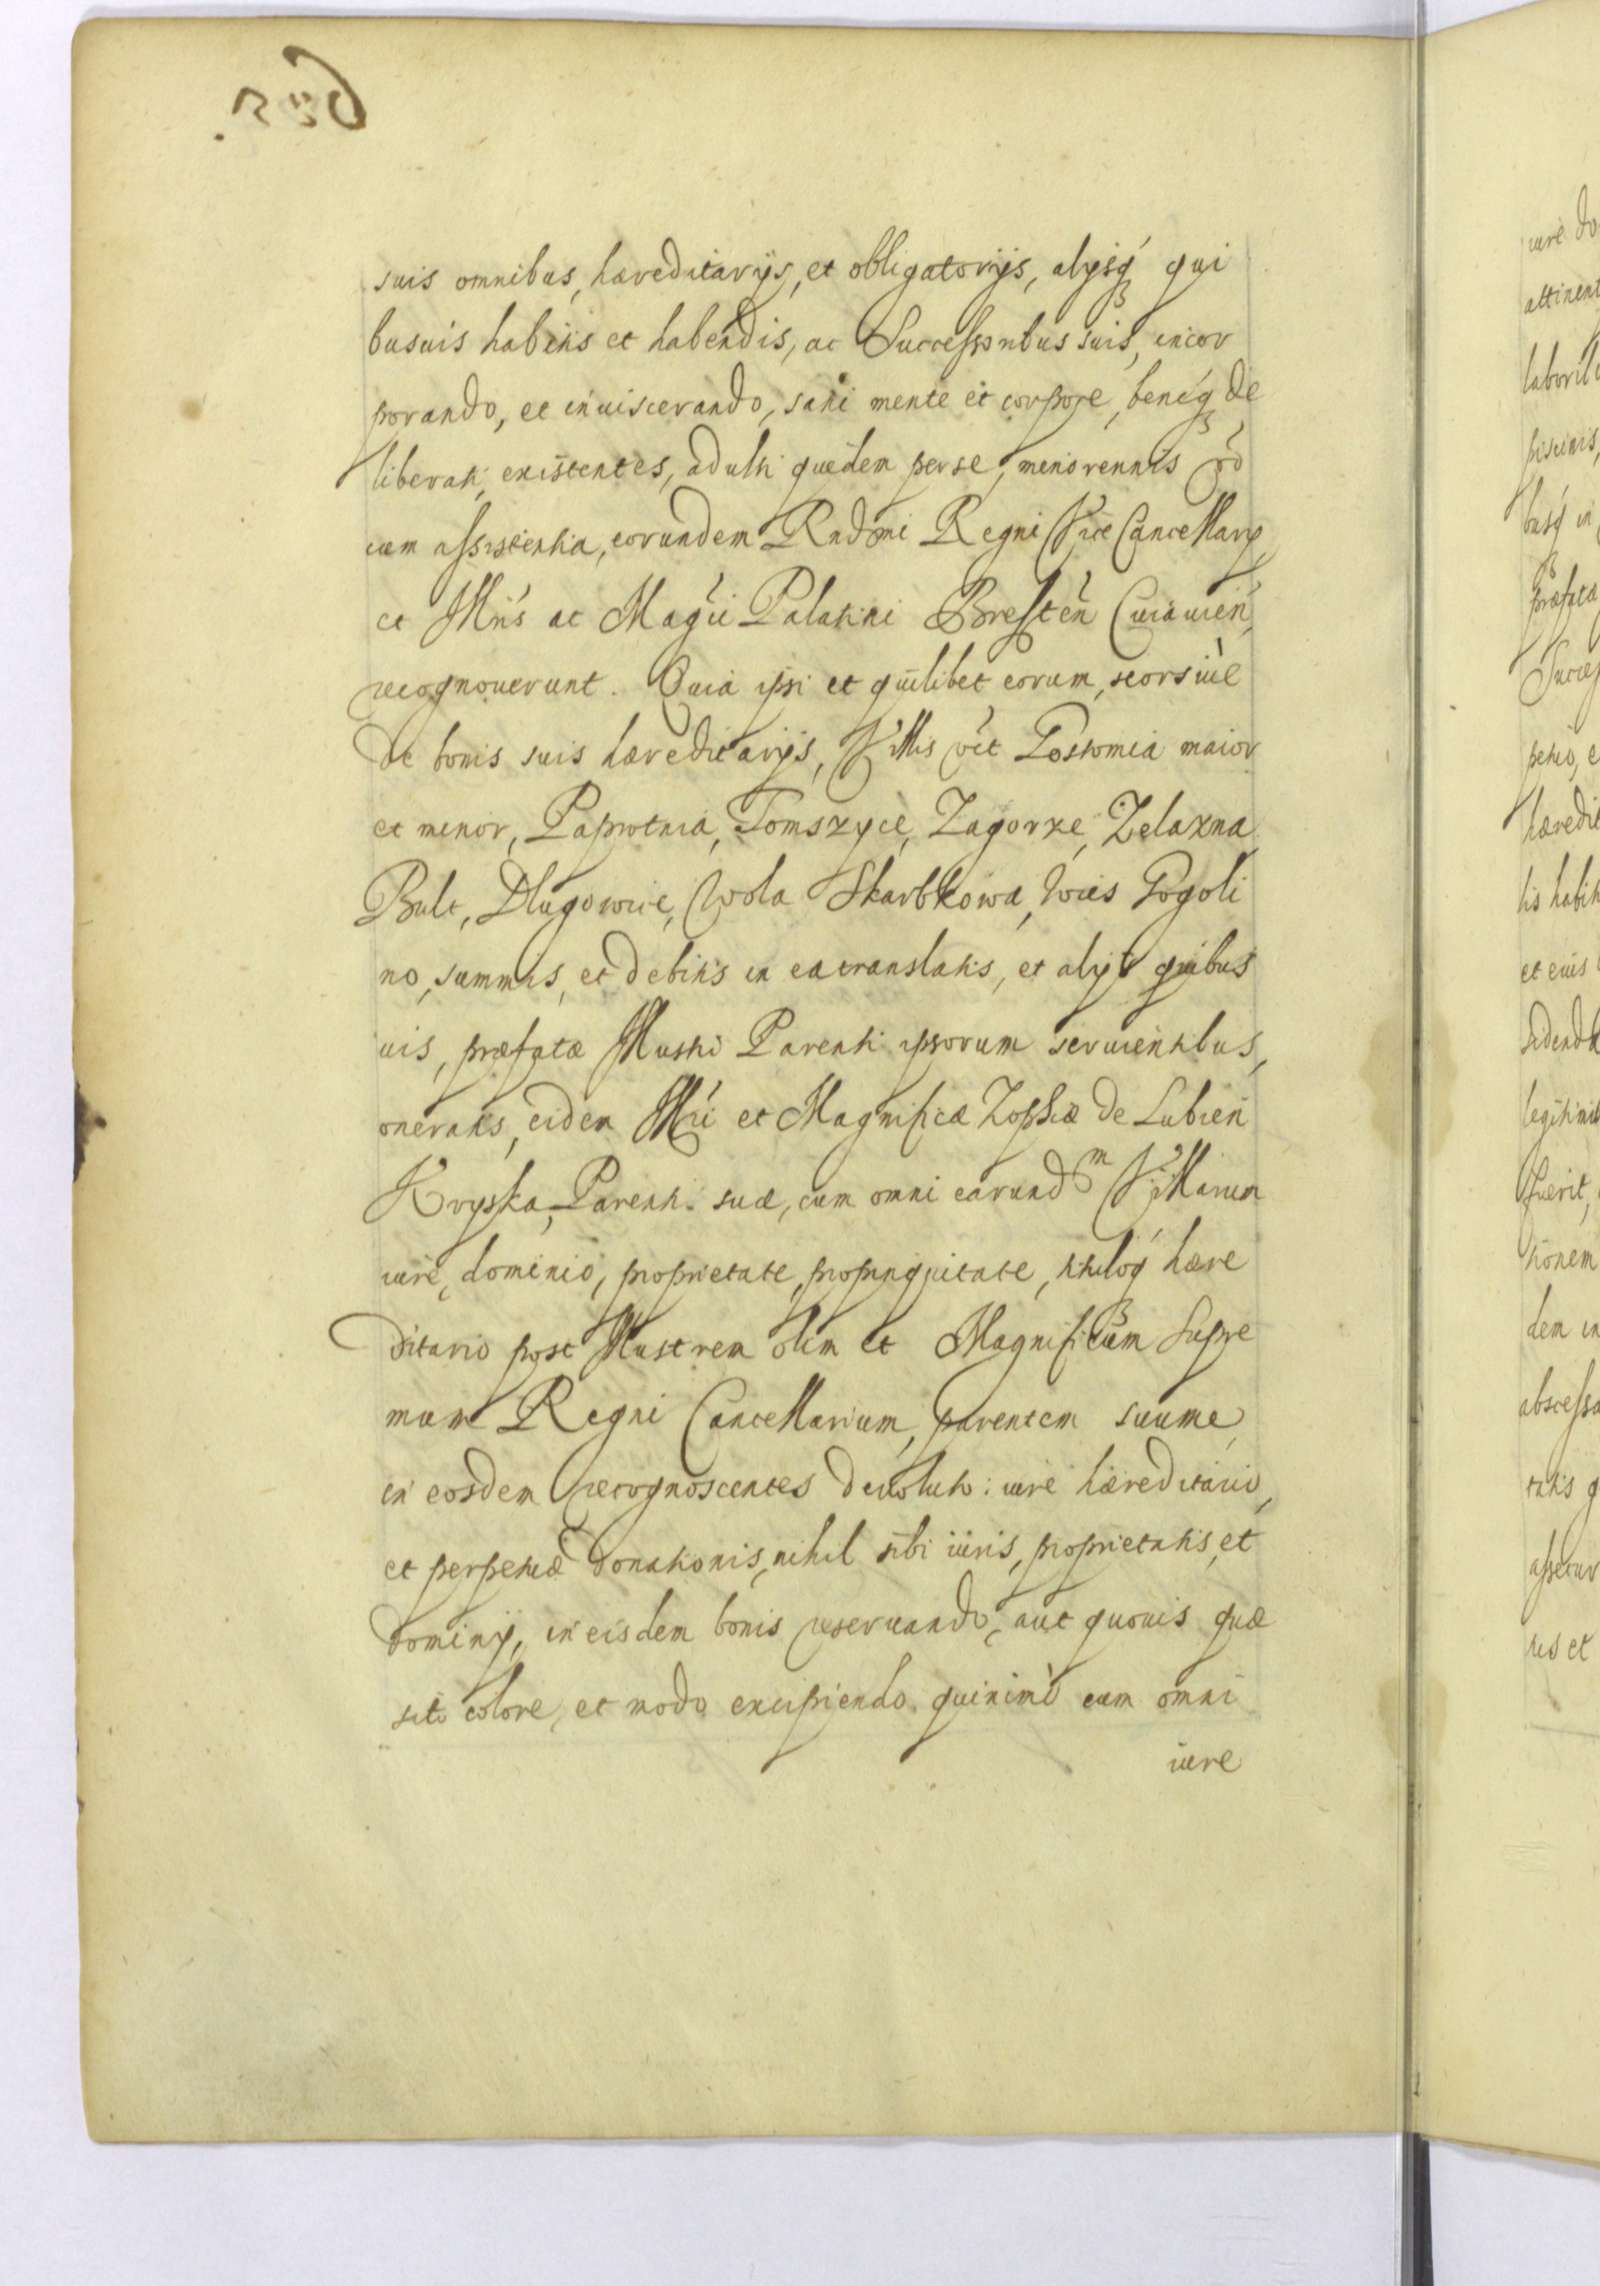 suis omnibus, hæreditarijs, et obligatorijs, alijsq́ qui
busuis habitis et habendis, ac Successoribus suis, incor
porando, et inuiscerando, sani mente et corpore, beneq́ de
liberati, existentes, adulti quidem per se, minorennis
cum assistentia, eorundem Rndmi Regni Vice Cancellarij,
et Illris ac Magci Palatini Bresten Cuiauien,
recognouerunt. Quia ipsi et quilibet eorum, seorsiue
de bonis suis hæreditarijs, Villis vct Postomia maior
et minor, Paprotnia, Tomszyce, Zagorze, Zelazna
Bult, Dlugowice, Wola Skarbkowa, Wies Pogoli
no, summis, et debitis in ea translatis, et alijs quibus
uis, præfatæ Illustri Parenti ipsorum seruientibus,
oneratis, eidem Illri et Magnificæ Zophiæ de Lubien
Kryska, Parenti suæ, cum omni earundm Villarum
iure, dominio, proprietate, propinquitate, titulóq́ hære
ditario post Illustrem olim et Magnificum Supre
mum Regni Cancellarium, parentem suum,
in eosdem recognoscentes deuoluto: iure hæreditario,
et perpetuæ donationis, nihil sibi iuris, proprietatis, et
dominij, in eisdem bonis reseruando, aut quouis quæ
sito colore, et modo excipiendo. quinimò cum omni
iure